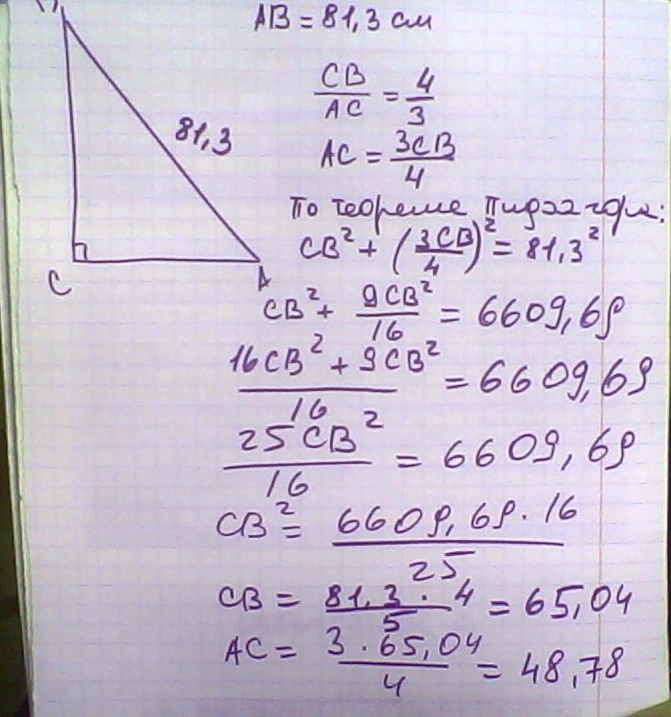 AB = 81,3 см
CB/AC = 4/3
81,3
AC = 3CB/4
По теореме Пифагора:
CB² + (3CB/4)² = 81,3²
C
A
CB² + 9CB²/16 = 6609,69
16CB² + 9CB²/16 = 6609,69
25CB²/16 = 6609,69
CB² = 6609,69 · 16/25
CB = 81,3 · 4/5 = 65,04
AC = 3 · 65,04/4 = 48,78